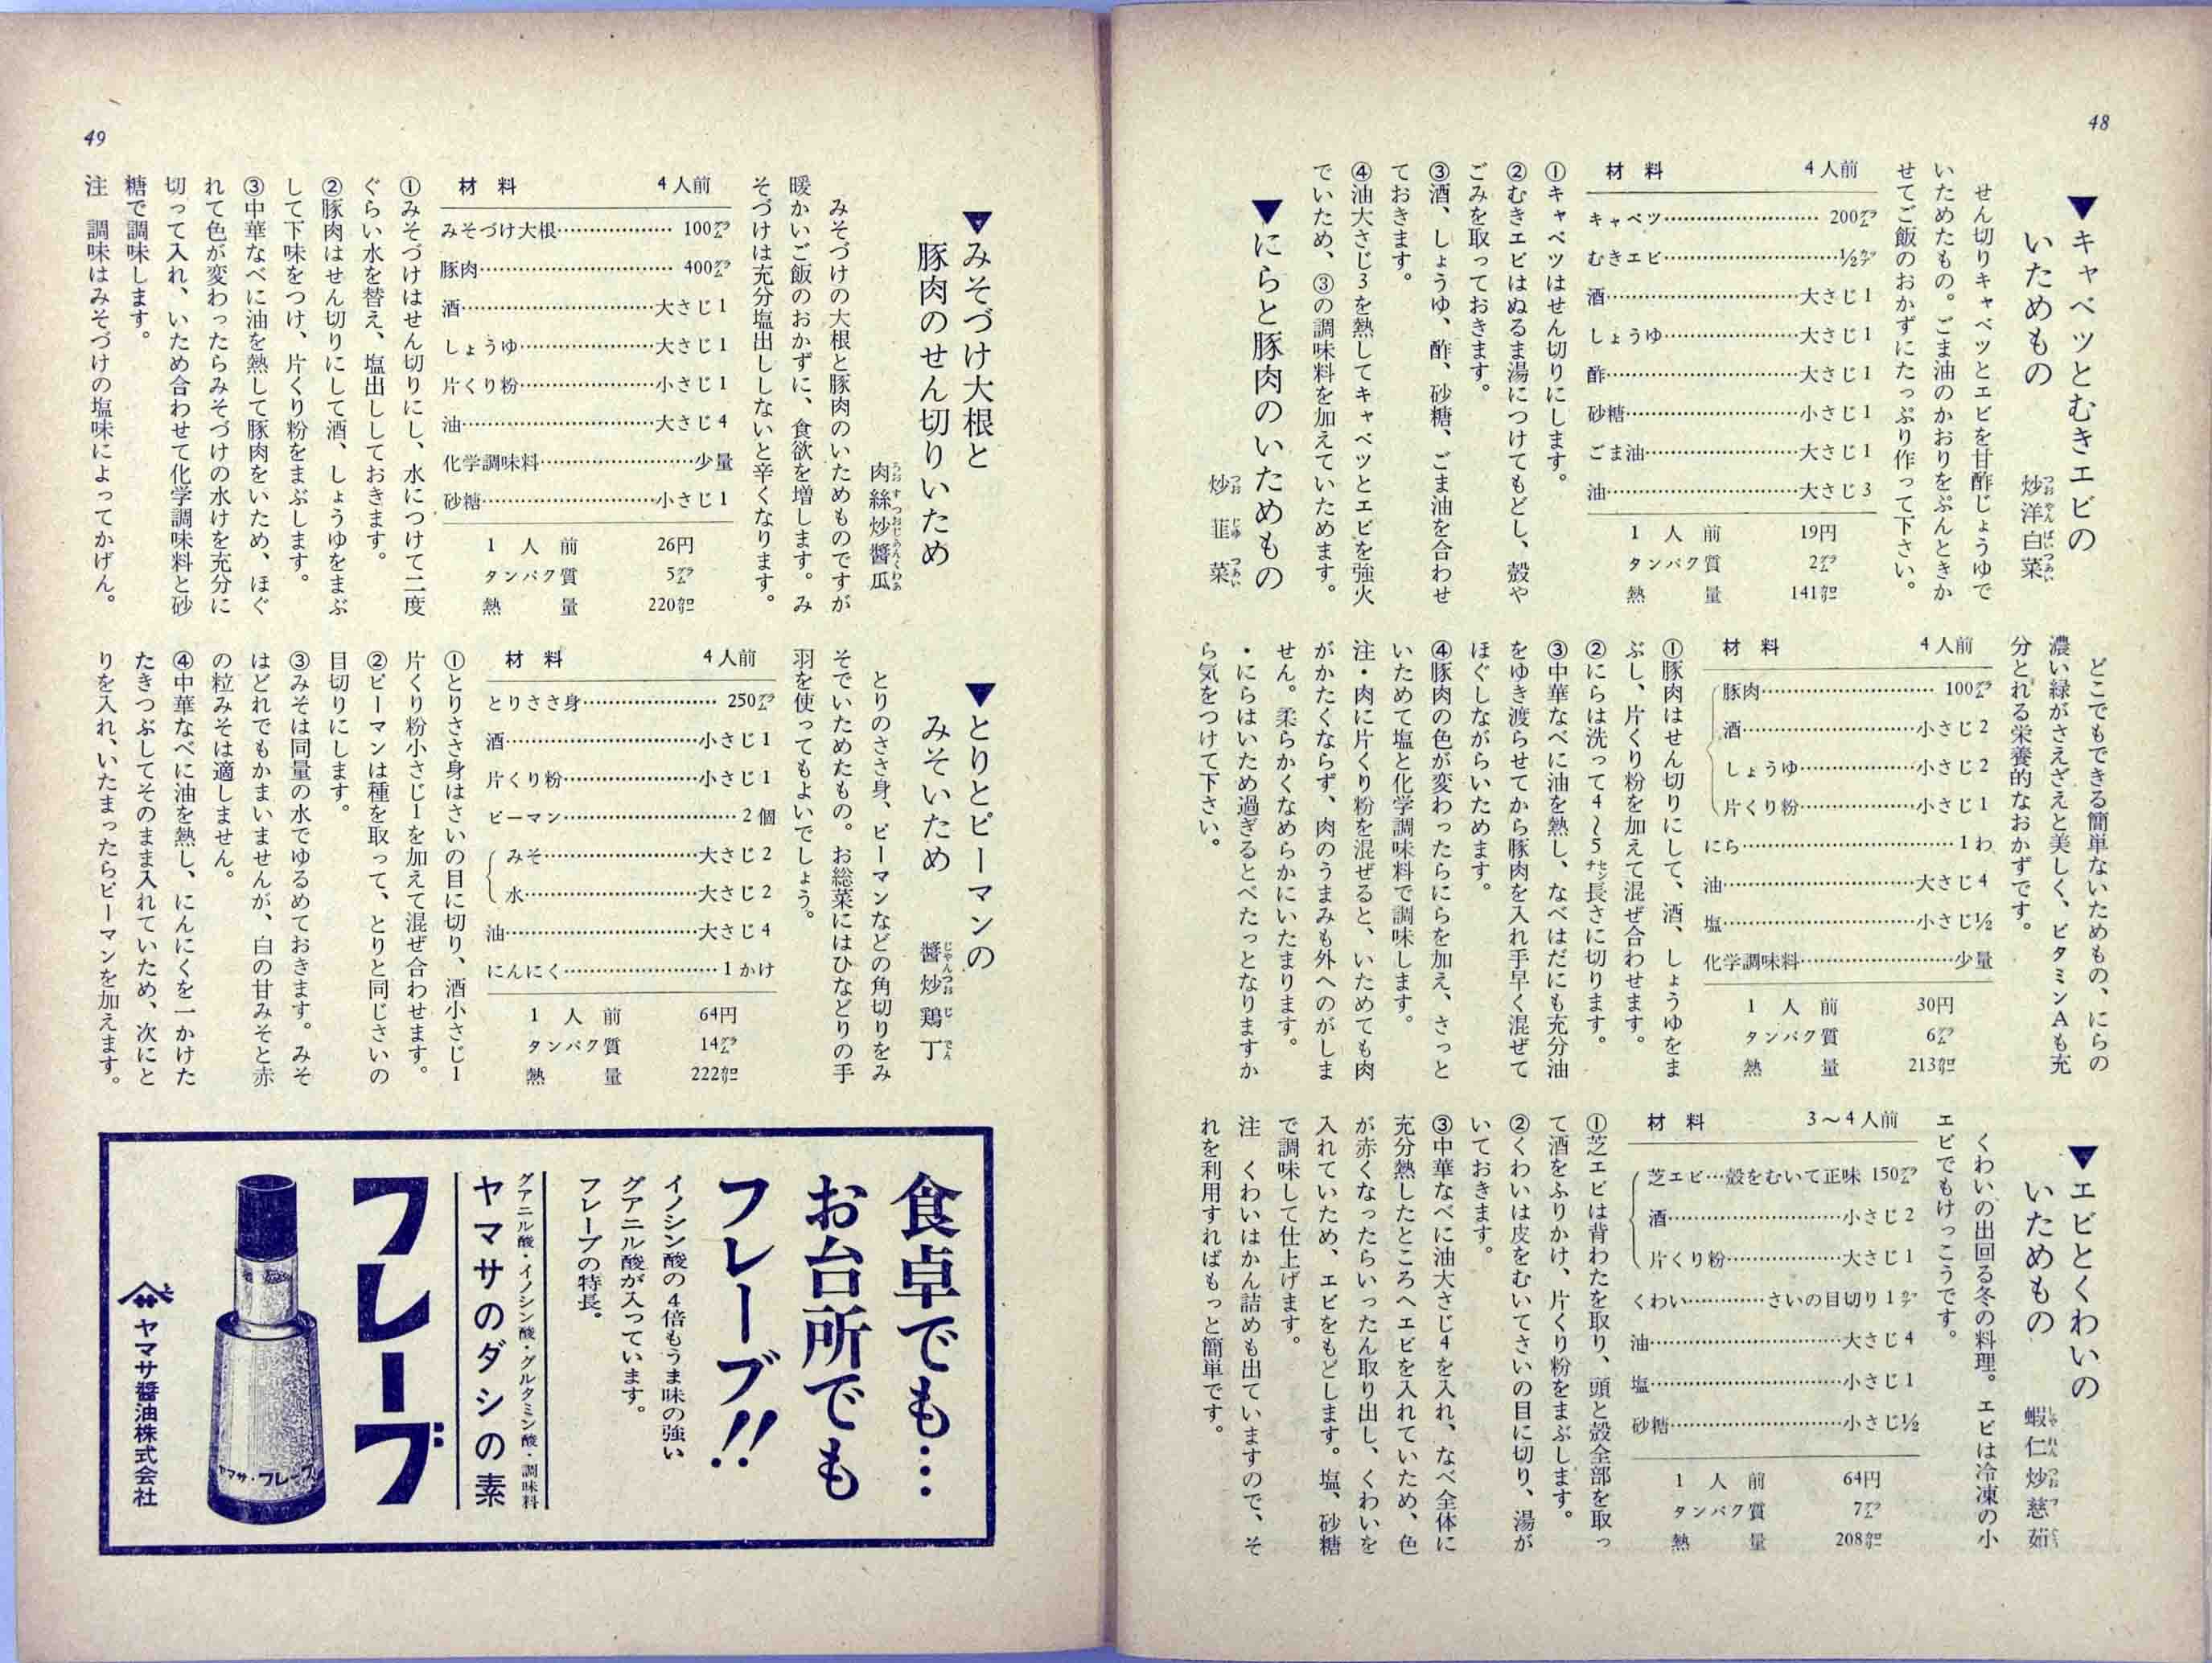 48
▼キャベツとむきエビの
いためもの
炒洋白菜
せん切りキャベツとエビを甘酢じょうゆで
いためたもの。ごま油のかおりをぷんときか
せてご飯のおかずにたっぷり作って下さい。
材料 4人前
キャベツ 200グラム
むきエビ ½カップ
酒 大さじ1
しょうゆ 大さじ1
酢 大さじ1
砂糖 小さじ1
ごま油 大さじ1
油 大さじ3
1人前 19円
タンパク質 2グラム
熱量 141カロリー
①キャベツはせん切りにします。
②むきエビはぬるま湯につけてもどし、殻や
ごみを取っておきます。
③酒、しょうゆ、酢、砂糖、ごま油を合わせ
ておきます。
④油大さじ3を熱してキャベツとエビを強火
でいため、③の調味料を加えていためます。
▼にらと豚肉のいためもの
炒韮菜
どこでもできる簡単ないためもの、にらの
濃い緑がさえざえと美しく、ビタミンAも充
分とれる栄養的なおかずです。
材料 4人前
豚肉 100グラム
酒 小さじ2
しょうゆ 小さじ2
片くり粉 小さじ1
にら 1わ
油 大さじ4
塩 小さじ½
化学調味料 少量
1人前 30円
タンパク質 6グラム
熱量 213カロリー
①豚肉はせん切りにして、酒、しょうゆをま
ぶし、片くり粉を加えて混ぜ合わせます。
②にらは洗って4〜5センチ長さに切ります。
③中華なべに油を熱し、なべはだにも充分油
をゆき渡らせてから豚肉を入れ手早く混ぜて
ほぐしながらいためます。
④豚肉の色が変わったらにらを加え、さっと
いためて塩と化学調味料で調味します。
注・肉に片くり粉を混ぜると、いためても肉
がかたくならず、肉のうまみも外へのがしま
せん。柔らかくなめらかにいたまります。
・にらはいため過ぎるとべたっとなりますか
ら気をつけて下さい。
▼エビとくわいの
いためもの
蝦仁炒慈茹
くわいの出回る冬の料理。エビは冷凍の小
エビでもけっこうです。
材料 3〜4人前
芝エビ…殻をむいて正味 150グラム
酒 小さじ2
片くり粉 大さじ1
くわい さいの目切り1カップ
油 大さじ4
塩 小さじ1
砂糖 小さじ½
1人前 64円
タンパク質 7グラム
熱量 208カロリー
①芝エビは背わたを取り、頭と殻全部を取っ
て酒をふりかけ、片くり粉をまぶします。
②くわいは皮をむいてさいの目に切り、湯が
いておきます。
③中華なべに油大さじ4を入れ、なべ全体に
充分熱したところへエビを入れていため、色
が赤くなったらいったん取り出し、くわいを
入れていため、エビをもどします。塩、砂糖
で調味して仕上げます。
注 くわいはかん詰めも出ていますので、そ
れを利用すればもっと簡単です。
49
▼みそづけ大根と
豚肉のせん切りいため
肉絲炒醬瓜
みそづけの大根と豚肉のいためものですが
暖かいご飯のおかずに、食欲を増します。み
そづけは充分塩出ししないと辛くなります。
材料 4人前
みそづけ大根 100グラム
豚肉 400グラム
酒 大さじ1
しょうゆ 大さじ1
片くり粉 小さじ1
油 大さじ4
化学調味料 少量
砂糖 小さじ1
1人前 26円
タンパク質 5グラム
熱量 220カロリー
①みそづけはせん切りにし、水につけて二度
ぐらい水を替え、塩出ししておきます。
②豚肉はせん切りにして酒、しょうゆをまぶ
して下味をつけ、片くり粉をまぶします。
③中華なべに油を熱して豚肉をいため、ほぐ
れて色が変わったらみそづけの水けを充分に
切って入れ、いため合わせて化学調味料と砂
糖で調味します。
注 調味はみそづけの塩味によってかげん。
▼とりとピーマンの
みそいため
醬炒鶏丁
とりのささ身、ピーマンなどの角切りをみ
そでいためたもの。お総菜にはひなどりの手
羽を使ってもよいでしょう。
材料 4人前
とりささ身 250グラム
酒 小さじ1
片くり粉 小さじ1
ピーマン 2個
みそ 大さじ2
水 大さじ2
油 大さじ4
にんにく 1かけ
1人前 64円
タンパク質 14グラム
熱量 222カロリー
①とりささ身はさいの目に切り、酒小さじ1
片くり粉小さじ1を加えて混ぜ合わせます。
②ピーマンは種を取って、とりと同じさいの
目切りにします。
③みそは同量の水でゆるめておきます。みそ
はどれでもかまいませんが、白の甘みそと赤
の粒みそは適しません。
④中華なべに油を熱し、にんにくを一かけた
たきつぶしてそのまま入れていため、次にと
りを入れ、いたまったらピーマンを加えます。
食卓でも…
お台所でも
フレーブ!!
イノシン酸の4倍もうま味の強い
グアニル酸が入っています。
フレーブの特長。
グアニル酸・イノシン酸・グルタミン酸・調味料
ヤマサのダシの素
フレーブ
ヤマサ・フレーブ
ヤマサ醬油株式会社